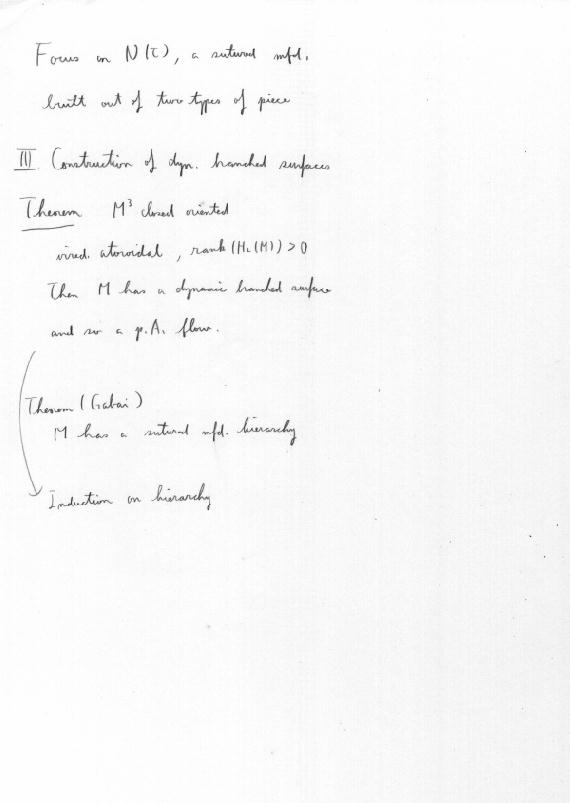 Focus on N(τ), a sutured mfd,
built out of two types of piece
III. Construction of dyn. branched surfaces
Theorem M³ closed oriented
irred. atoroidal, rank(H₂(M)) > 0
Then M has a dynamic branched surface
and so a p.A. flow.
Theorem (Gabai)
M has a sutured mfd. hierarchy
Induction on hierarchy